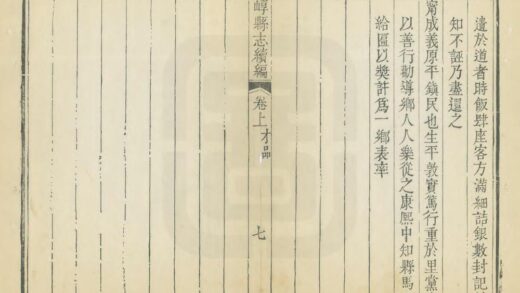 遺於道者時飯肆座客方滿細詰銀數封記
知不誣乃盡還之
甯成義原平鎮民也生平敦實篤行重於里黨
以善行勸導鄉人人樂從之康熙中知縣馬
給匾以獎許為一鄉表率
崞縣志續編
卷上才品
七